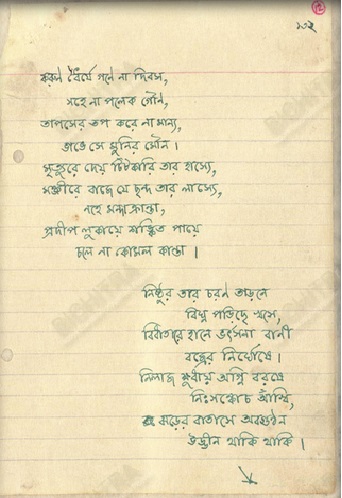 ১৩২
করুণ ধৈর্যে গণে না দিবস,
সহে না পলেক গৌণ,
তাপসের তপ করে না মান্য,
ভাঙে সে মুনির মৌন।
মৃত্যুরে দেয় টিটকারি তার হাস্যে,
মঞ্জীরে বাজে যে ছন্দ তার লাস্যে,
নহে মন্দাক্রান্তা,
প্রদীপ লুকায়ে শঙ্কিত পায়ে
চলে না কোমল কান্তা।
নিষ্ঠুর তার চরণ তাড়নে
বিঘ্ন পড়িছে খসে,
বিধাতারে হানে ভর্ৎসনা বাণী
বজ্রের নির্ঘোষে।
নিলাজ ক্ষুধায় অগ্নি বরষে
নিঃসঙ্কোচ আঁখি,
ঝড়ের বাতাসে অবগুণ্ঠন
উড্ডীন থাকি থাকি।